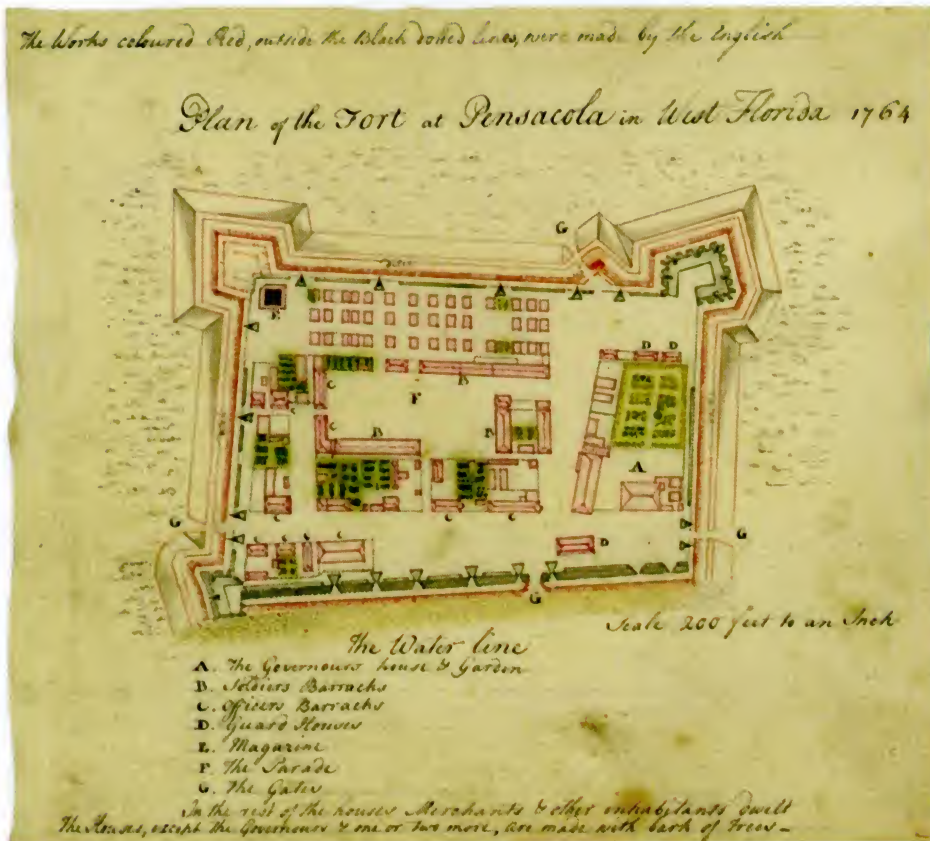 The Works coloured Red, outside the Black dotted lines, were made by the English
Plan of the Fort at Pensacola in West Florida 1764
G
E
D D
B
C
F
C
C
B
B
A
G
C
C C
G
C C C C
D
G
Scale 200 feet to an Inch
The Water line
A. The Governours house & Garden
B. Soldiers Barracks
C. Officers Barracks
D. Guard Houses
E. Magazine
F. The Parade
G. The Gates
In the rest of the houses Merchants & other inhabitants dwelt
The Houses, except the Governours & one or two more, are made with bark of Trees